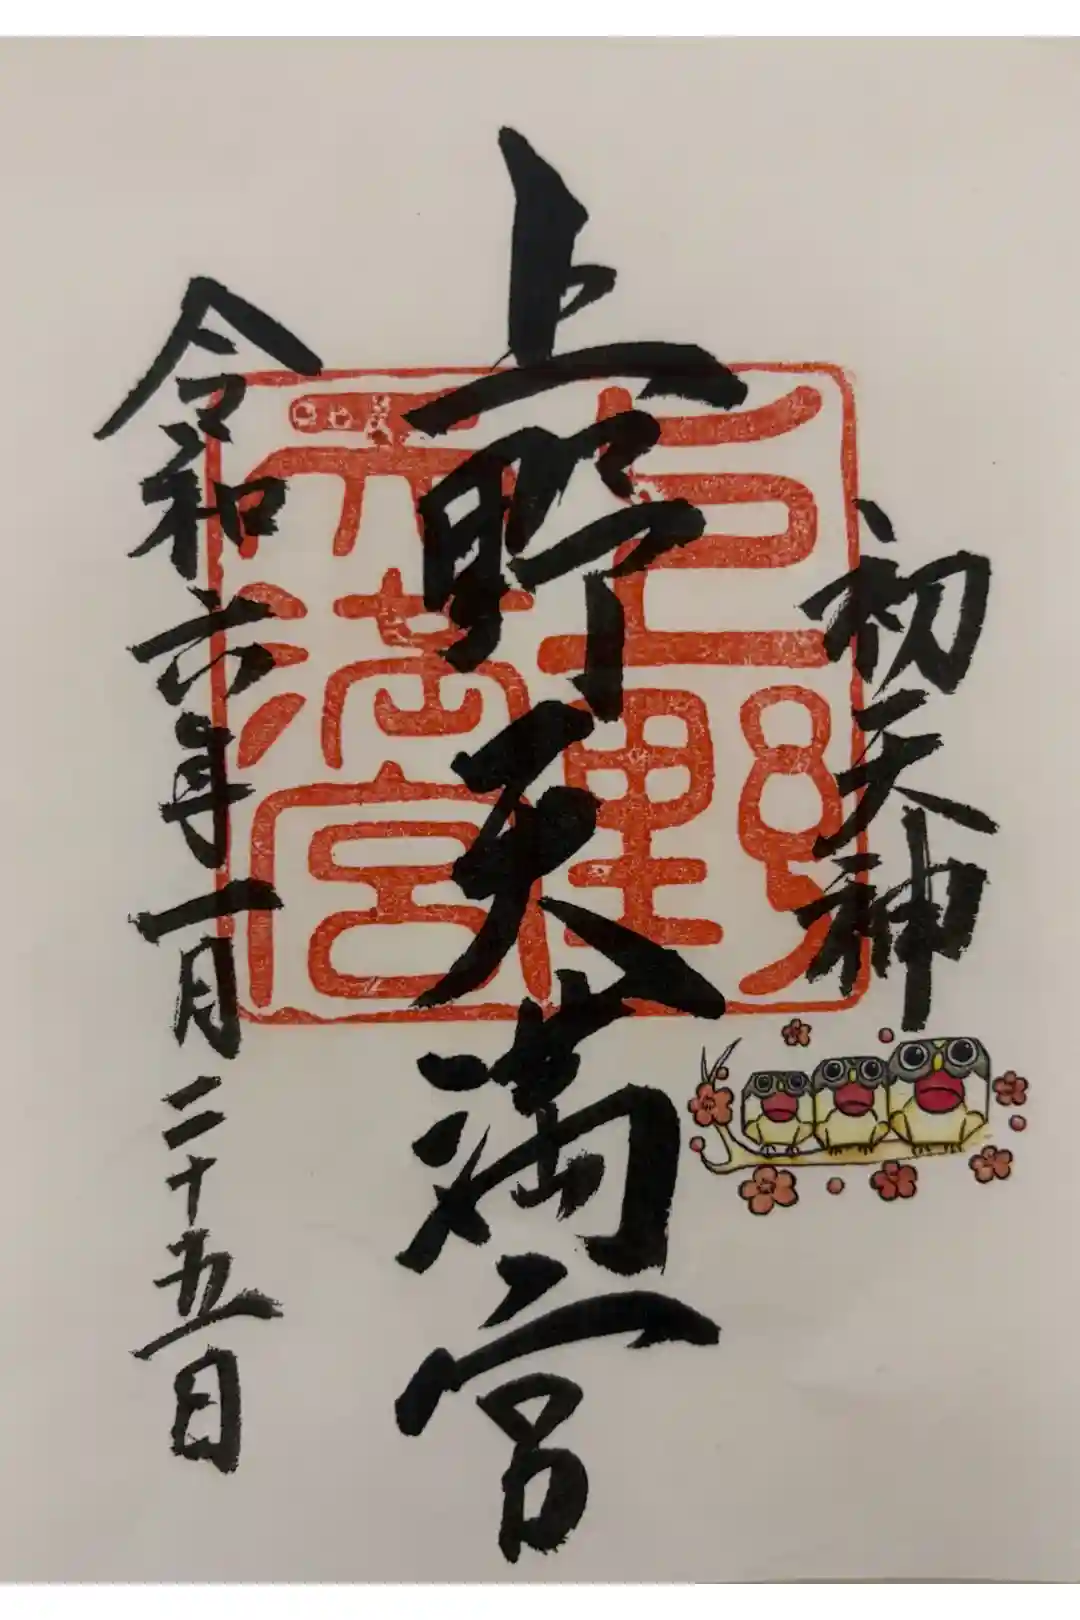 初天神
上野天満宮
上野天満宮
令和六年一月二十五日